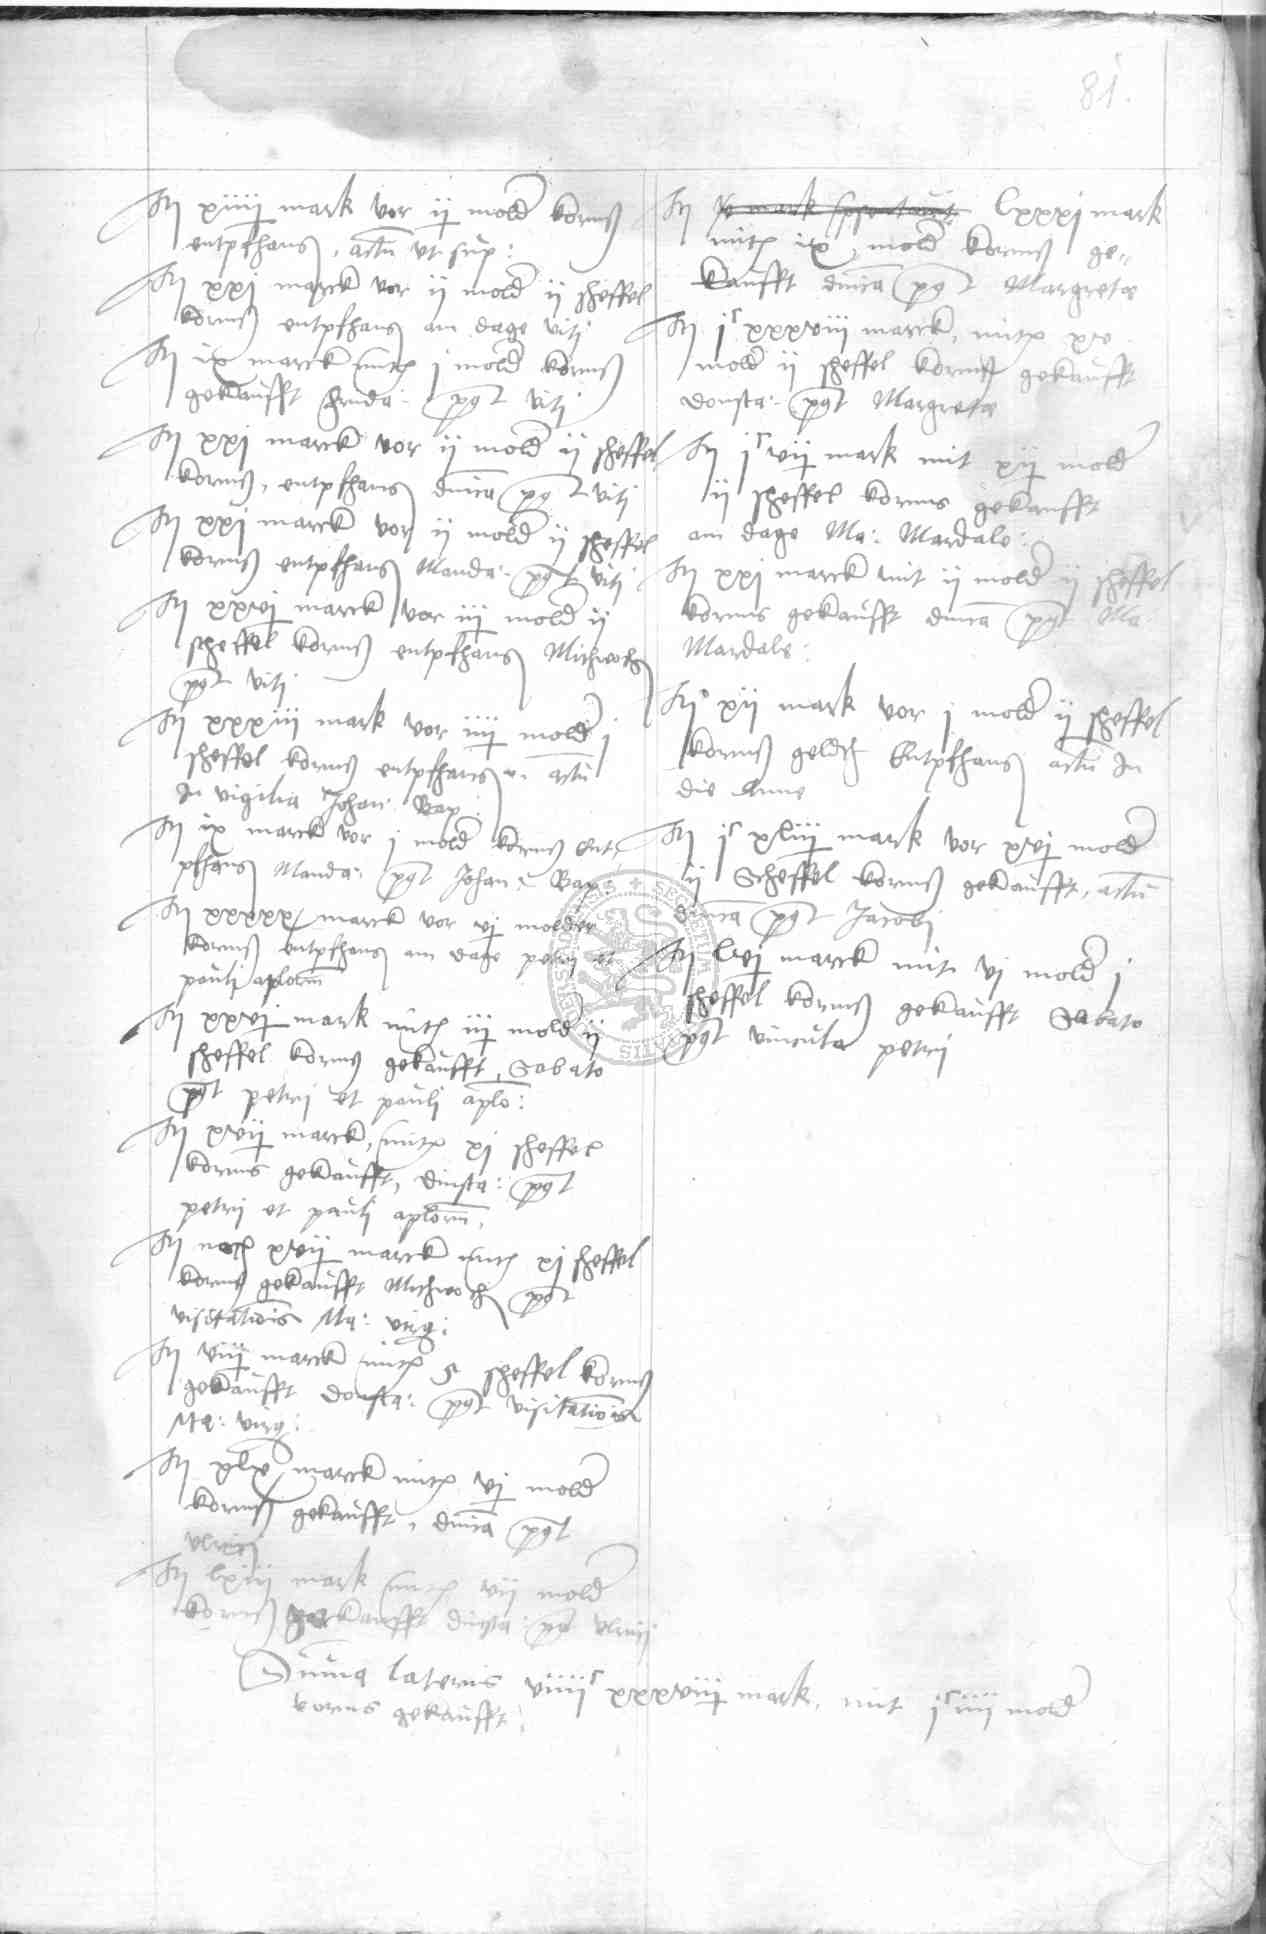 81.
It xiiij mark vor ij mold korns
entpfhans, actu ut sup:
It xxj marck vor ij mold ij scheffel
korns entpfhans am dage viti
It ix marck mitx j mold korns
gekaufft frida: pt viti
It xxj marck vor ij mold ij scheffel
korns, entpfhans dnica pt viti
It xxj marck vor ij mold ij scheffel
korns entpfhans Manda: pt viti
It xxvj marck vor iij mold ij
scheffel korns entpfhans Mitwoch
pt viti
It xxxiii mark vor iiij mold j
scheffel korns entpfhans actu
In vigilia Johan: Bap:
It ix marck vor j mold korns Ent
pfhans Manda: pt Johan: Bap:
It xxxxx marck vor vj molder
korns entpfhans am dage petri et
pauli aplorm
It xxvj mark mitx iij mold ij
scheffel korns gekaufft, Sabato
pt petri et pauli aplo:
It xvij marck, mitx xj scheffel
korns gekaufft, dinsta: pt
petri et pauli aplorm,
It noch xvij marck mitx xj scheffel
korns gekaufft Mitwoch pt
visitationis Ma: virg:
It viij marck mitx 5 scheffel korns
gekaufft donsta: pt visitationis
Ma: virg:
It xlv marck mitx vj mold
korns gekaufft, dnica pt
vlrici
It lxiij mark mitx vij mold
korns gekaufft dinsta: pt vlrici
It lxxxj mark
mitx ix, mold korns ge-
kaufft dnica pt Margrete
It jc xxxviii marck, mitx xv
mold ij scheffel korns gekaufft
donsta: pt Margrete
It jc vij mark mit xij mold
ij scheffel korns gekaufft
am dage Ma: Mardale:
It xxj marck mit ij mold ij scheffel
korns gekaufft dnica pt Ma
Mardale:
It xij mark vor j mold ij scheffel
korns Entpfhans actu In
die Anne
It jc xliij mark vor xvj mold
ij Scheffel korns gekaufft, actu
dnica pt Jacobi
It lvj marck mit vj mold j
scheffel korns gekaufft Sabato
pt vincula petri
Suma lateris viiijc xxxviij mark, mit jc iiij mold
korns gekaufft,